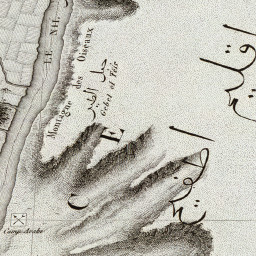 LE NIL
Montagne des Oiseaux
جبل الطير
Gebel el Teir
اقليم
اطفيح
C E
Camp Arabe